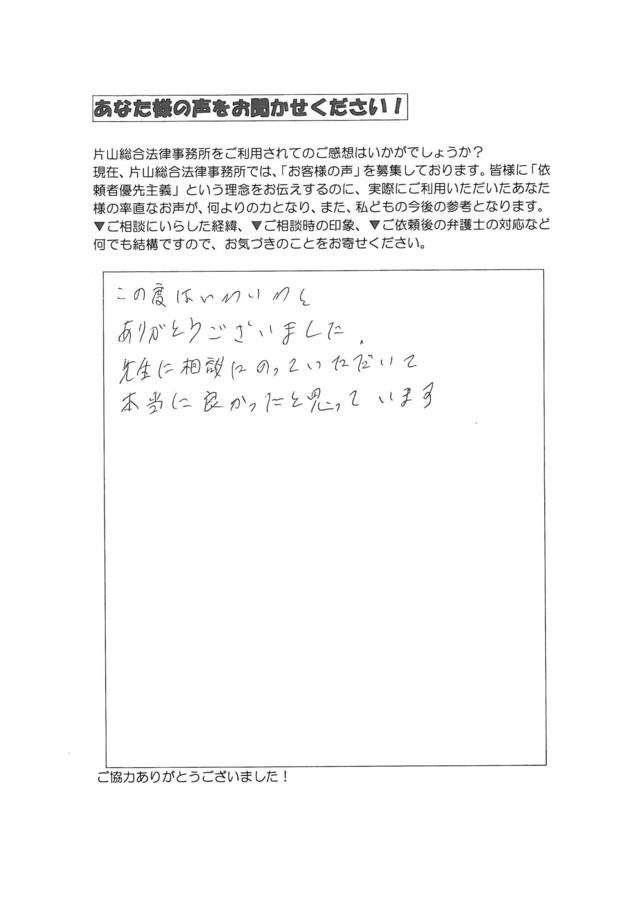 あなた様の声をお聞かせください！
片山総合法律事務所をご利用されてのご感想はいかがでしょうか？
現在、片山総合法律事務所では、「お客様の声」を募集しております。皆様に「依
頼者優先主義」という理念をお伝えするのに、実際にご利用いただいたあなた
様の率直なお声が、何よりの力となり、また、私どもの今後の参考となります。
▼ご相談にいらした経緯、▼ご相談時の印象、▼ご依頼後の弁護士の対応など
何でも結構ですので、お気づきのことをお寄せください。
この度はいろいろと
ありがとうございました.
先生に相談にのっていただいて
本当に良かったと思っています
ご協力ありがとうございました！